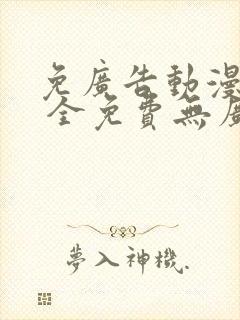 免廣告動漫
全免費無廣
夢入神機.